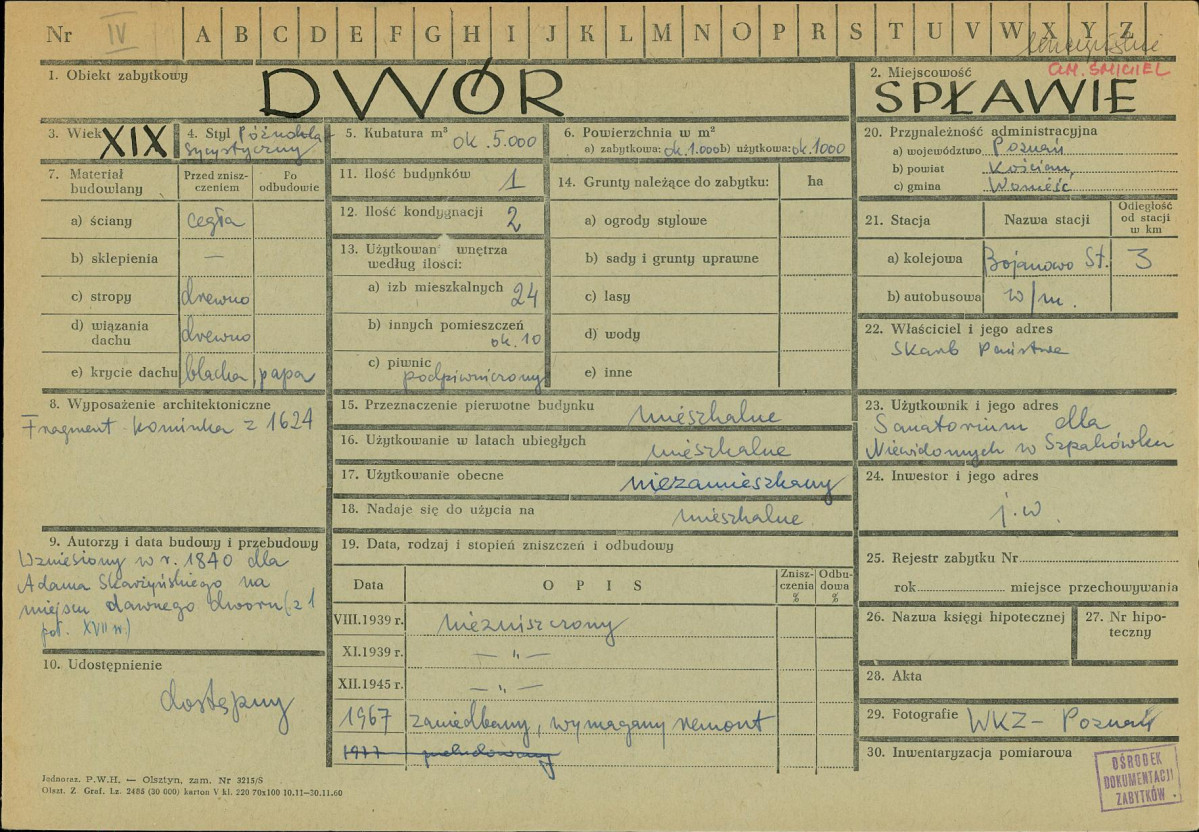 Nr IV A B C D E F G H I J K L M N O P R S T U V W X Y Z
GM. ŚMIGIEL
1. Obiekt zabytkowy
DWÓR
2. Miejscowość
SPŁAWIE
3. Wiek XIX
4. Styl Późnokla-
sycystyczny
5. Kubatura m³ ok. 5.000
6. Powierzchnia w m²
a) zabytkowa: ok. 1.000 b) użytkowa: ok. 1000
7. Materiał budowlany
Przed zniszczeniem
Po odbudowie
a) ściany cegła
b) sklepienia —
c) stropy drewno
d) wiązania dachu drewno
e) krycie dachu blacha papa
8. Wyposażenie architektoniczne
Fragment kominka z 1624
9. Autorzy i data budowy i przebudowy
Wzniesiony w r. 1840 dla
Adama Skarżyńskiego na
miejscu dawnego dworu (z 1
poł. XVII w.)
10. Udostępnienie
dostępny
11. Ilość budynków 1
12. Ilość kondygnacji 2
13. Użytkowan wnętrza
według ilości:
a) izb mieszkalnych 24
b) innych pomieszczeń
ok. 10
c) piwnic
podpiwniczony
14. Grunty należące do zabytku: ha
a) ogrody stylowe
b) sady i grunty uprawne
c) lasy
d) wody
e) inne
15. Przeznaczenie pierwotne budynku mieszkalne
16. Użytkowanie w latach ubiegłych mieszkalne
17. Użytkowanie obecne niezamieszkany
18. Nadaje się do użycia na mieszkalne
19. Data, rodzaj i stopień zniszczeń i odbudowy
Data OPIS Zniszczenia % Odbudowa %
VIII.1939 r. niezniszczony
XI.1939 r. — „ —
XII.1945 r. — „ —
1967 zaniedbany, wymagany remont
1977
20. Przynależność administracyjna
a) województwo Poznań
b) powiat Kościan,
c) gmina Wonieść
21. Stacja Nazwa stacji Odległość od stacji w km
a) kolejowa Bojanowo St. 3
b) autobusowa w/m.
22. Właściciel i jego adres
Skarb Państwa
23. Użytkownik i jego adres
Sanatorium dla
Niewidomych w
24. Inwestor i jego adres
j.w.
25. Rejestr zabytku Nr
rok miejsce przechowywania
26. Nazwa księgi hipotecznej
27. Nr hipoteczny
28. Akta
29. Fotografie WKZ - Poznań
30. Inwentaryzacja pomiarowa
OŚRODEK
DOKUMENTACJI
ZABYTKÓW
Jednoraz. P.W.H. — Olsztyn, zam. Nr 3215/S
Olszt. Z. Graf. Lz. 2483 (30 000) karton V kl. 220 70x100 10.11-30.11.60